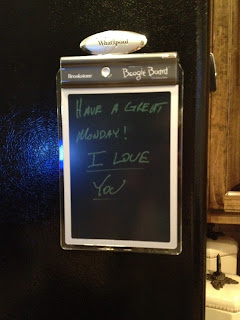 Whirlpool
Brookstone Boogie Board
HAVE A GREAT
MONDAY!
I LOVE
YOU